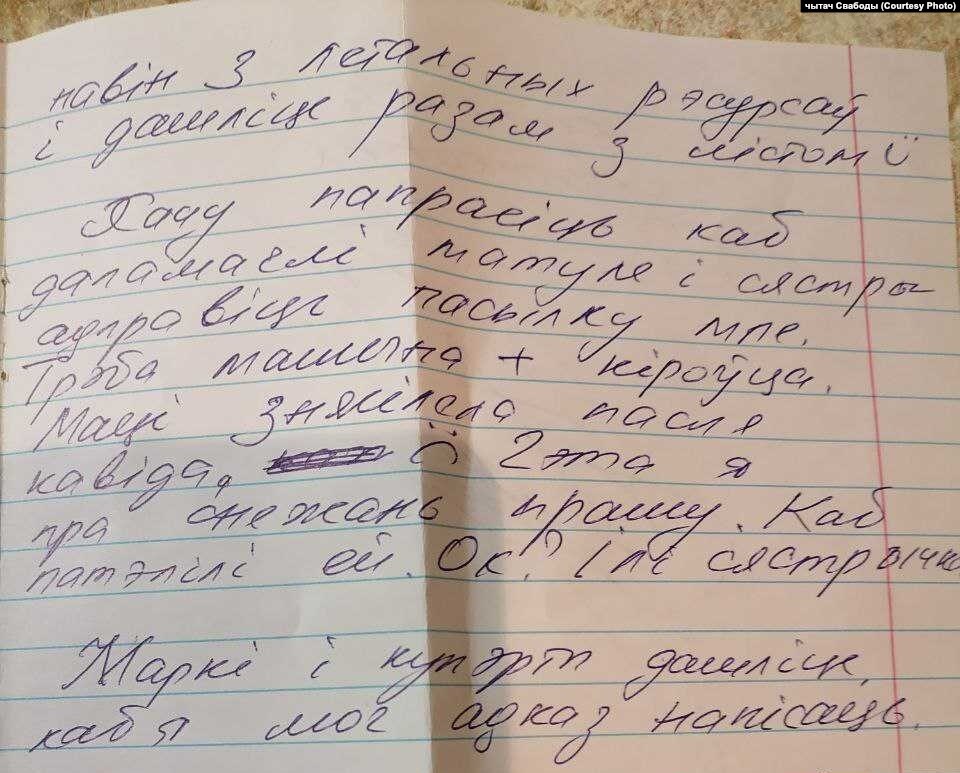 чытач Свабоды (Courtesy Photo)
навін з летальных рэсурсаў
і дашліце разам з лістом Ü
Хачу папрасіць каб
дапамаглі матуле і сястры
адправіць пасылку мне.
Трэба машына + кіроўца.
Маці знясілела пасля
кавіда. Гэта я
пра снежань прашу. Каб
патэлілі ей. Ок? Ілі сястрычке
Маркі і купэрты дашліце,
каб я мог адказ напісаць.